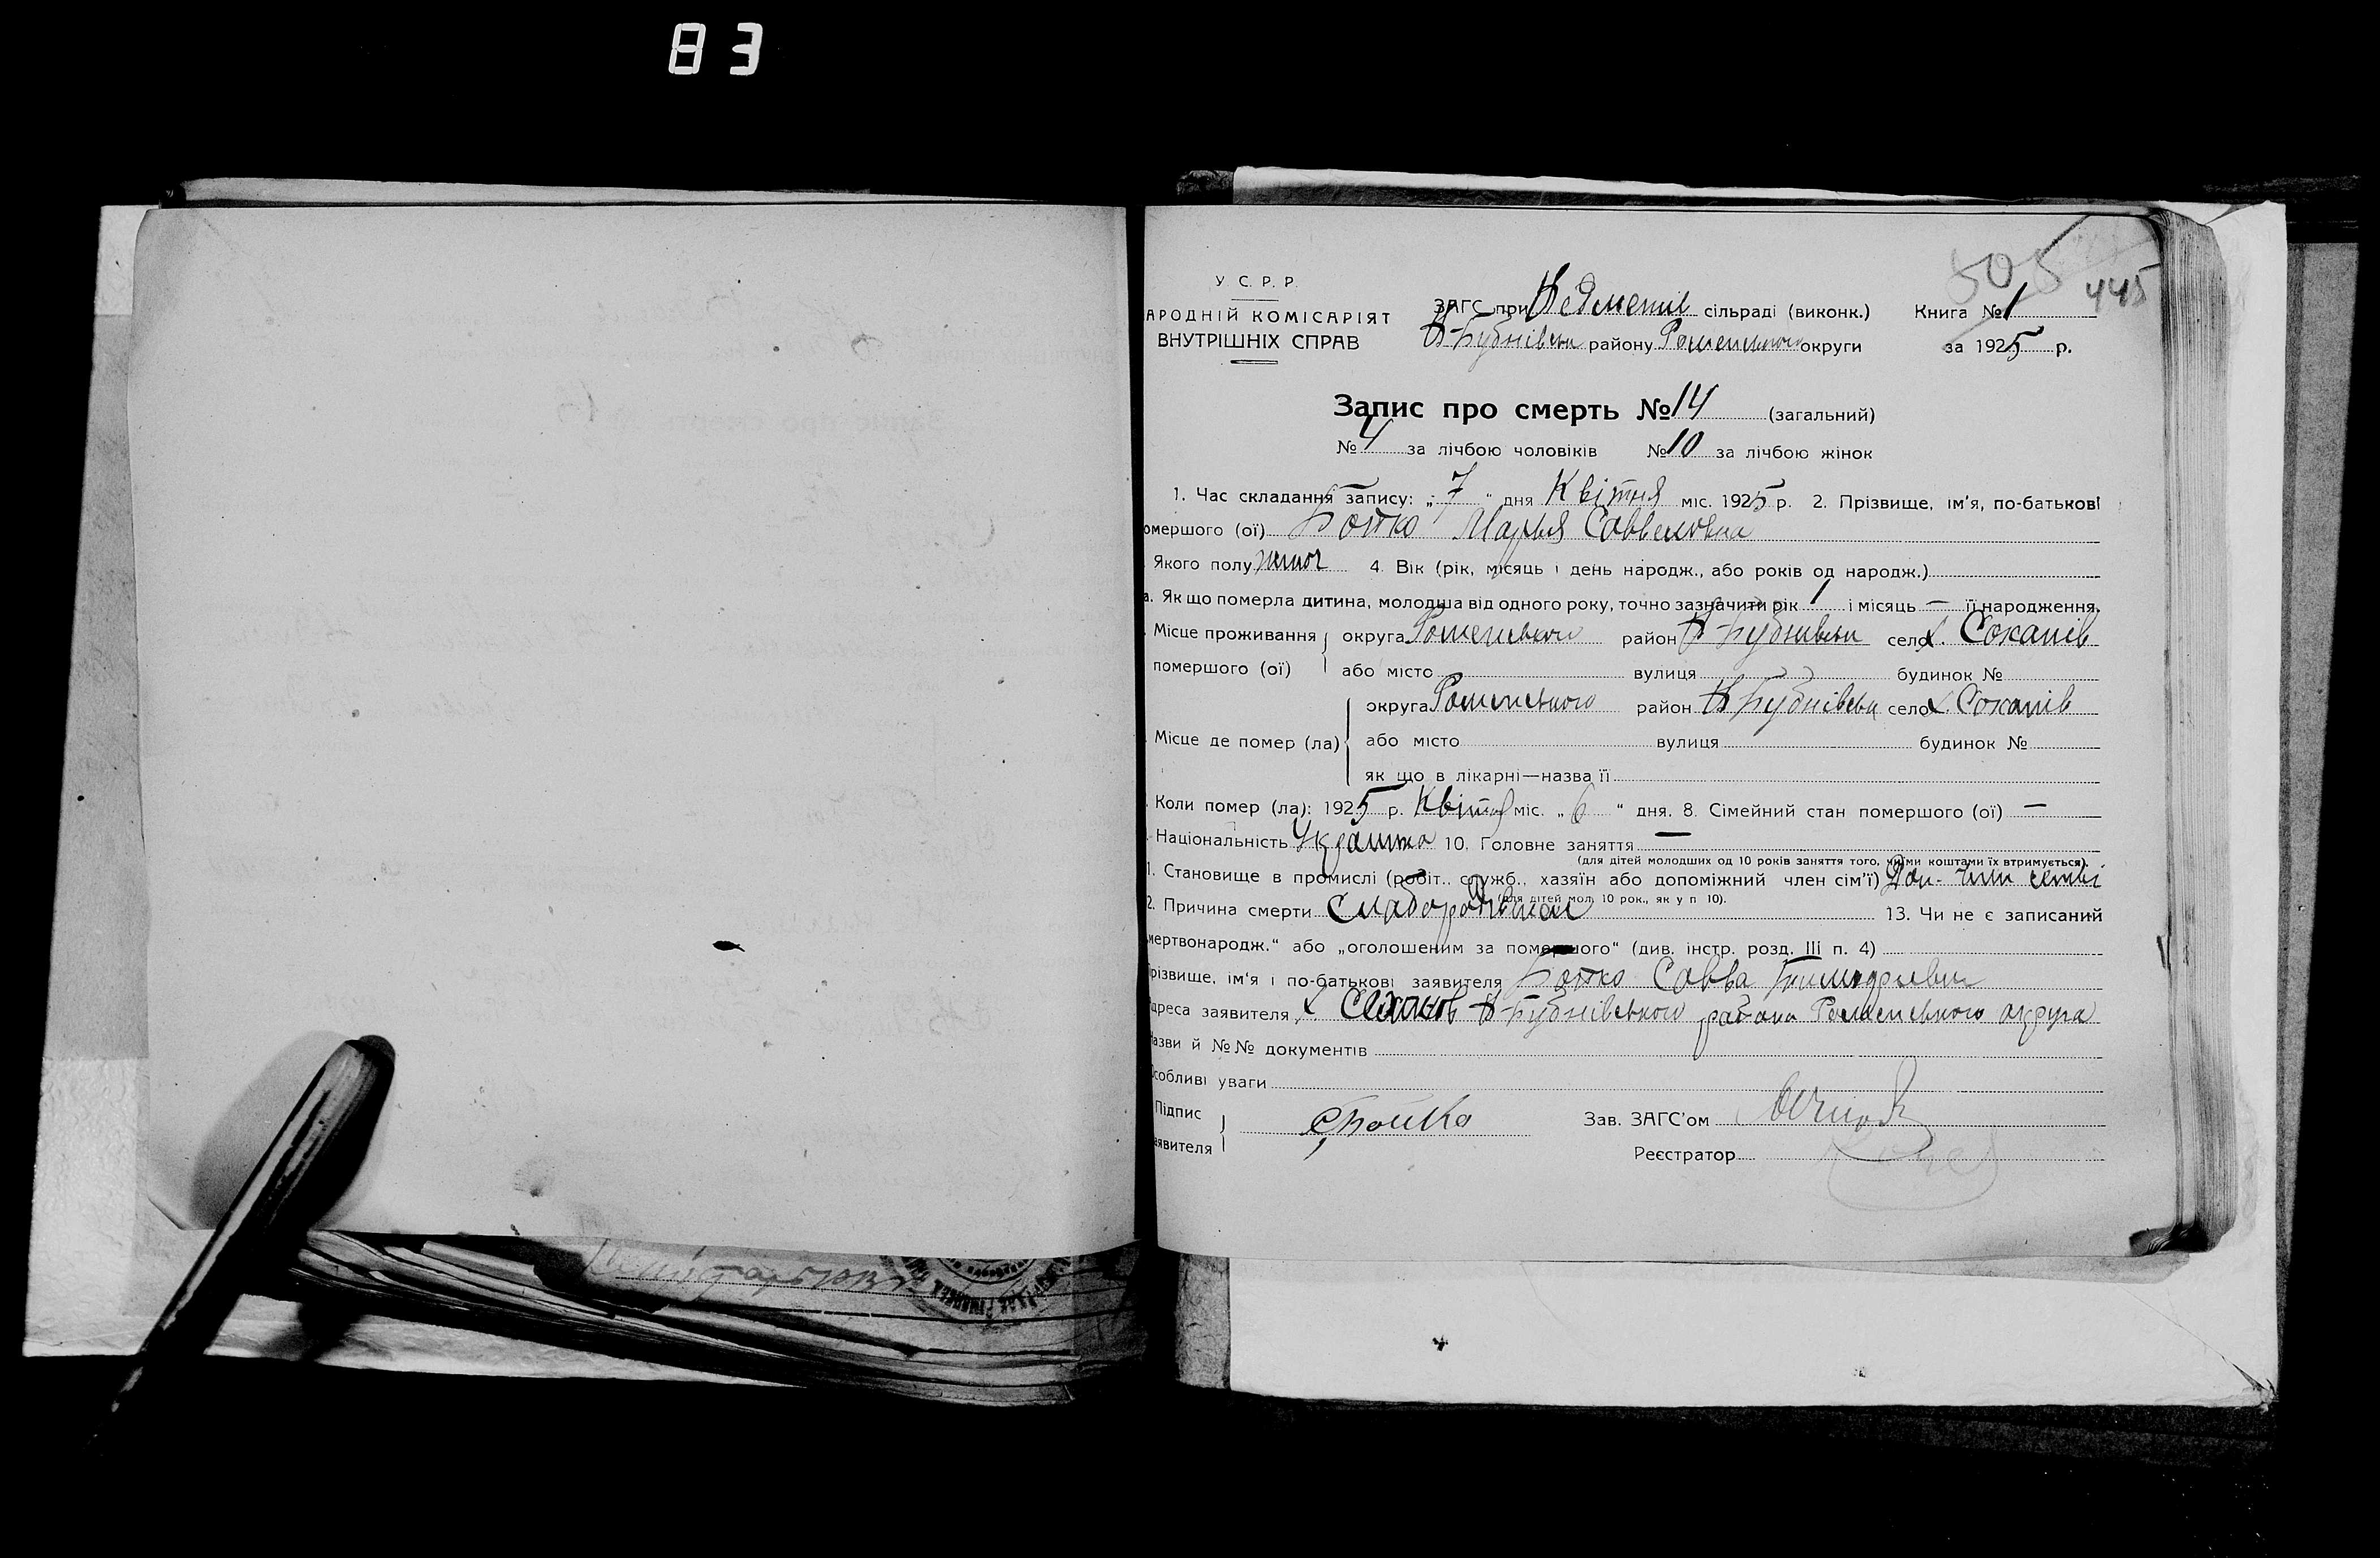 83
505
445
У С. Р. Р.
АРОДНІЙ КОМІСАРІЯТ
ВНУТРІШНІХ СПРАВ
ЗАГС при сільраді (виконк.) Книга № 1
району Роменського округи за 1925 р.
Запис про смерть № 14 (загальний)
№ 4 за лічбою чоловіків № 10 за лічбою жінок
1. Час складання запису: „ 7 “ дня Квітня міс. 1925 р. 2. Прізвище, ім'я, по-батькові
омершого (ої) Бойко Марья Саввеловна
Якого полу жіноч 4. Вік (рік, місяць і день народж., або років од народж.)
а. Як що померла дитина, молодша від одного року, точно зазначити рік 1 і місяць — її народження.
Місце проживання округа Роменського район село х.
помершого (ої) або місто вулиця будинок №
округа Роменського район село х.
Місце де помер (ла) або місто вулиця будинок №
як що в лікарні—назва її
Коли помер (ла): 1925 р. Квітня міс. „ 6 “ дня. 8. Сімейний стан помершого (ої) —
Національність Українка 10. Головне заняття —
(для дітей молодших од 10 років заняття того, чиїми коштами їх втримується).
1. Становище в промислі (робіт., служб., хазяїн або допоміжний член сім'ї) Доп. член семьі
(для дітей мол. 10 рок., як у п 10).
2. Причина смерти 13. Чи не є записаний
мертвонародж.“ або „оголошеним за помершого“ (див. інстр. розд. III п. 4)
різвище, ім'я і по-батькові заявителя Бойко Савва
дреса заявителя х. района Роменського округа
азви й №№ документів
Особливі уваги
Підпис
аявителя СБойко Зав. ЗАГС'ом
Реєстратор